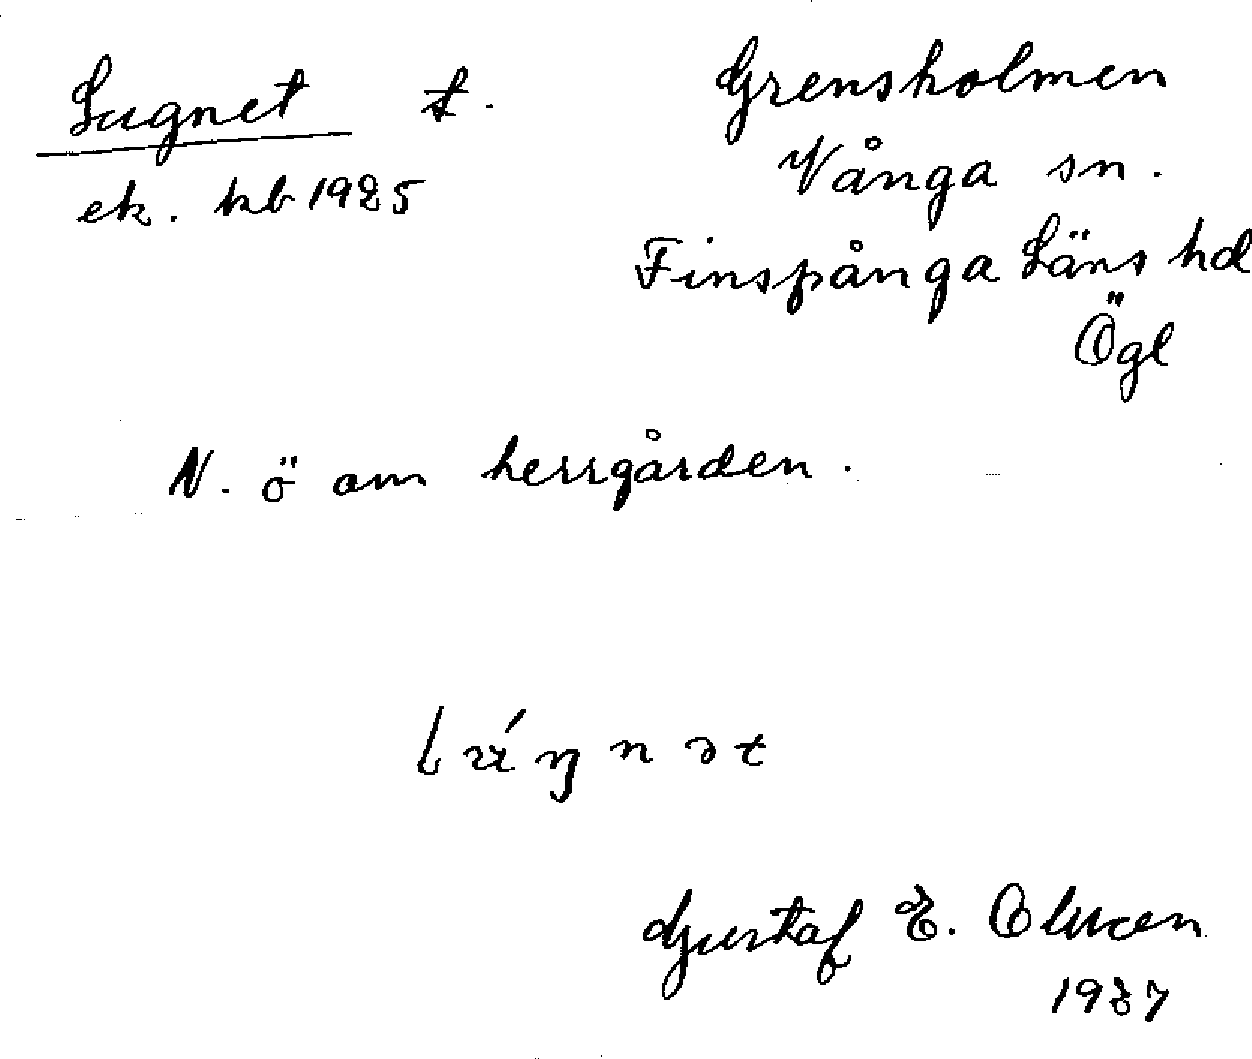 Lugnet t.
ek. kb 1925
Grensholmen
Vånga sn.
Finspånga Läns hd
Ögl
N. ö om herrgården.
Gustaf E.